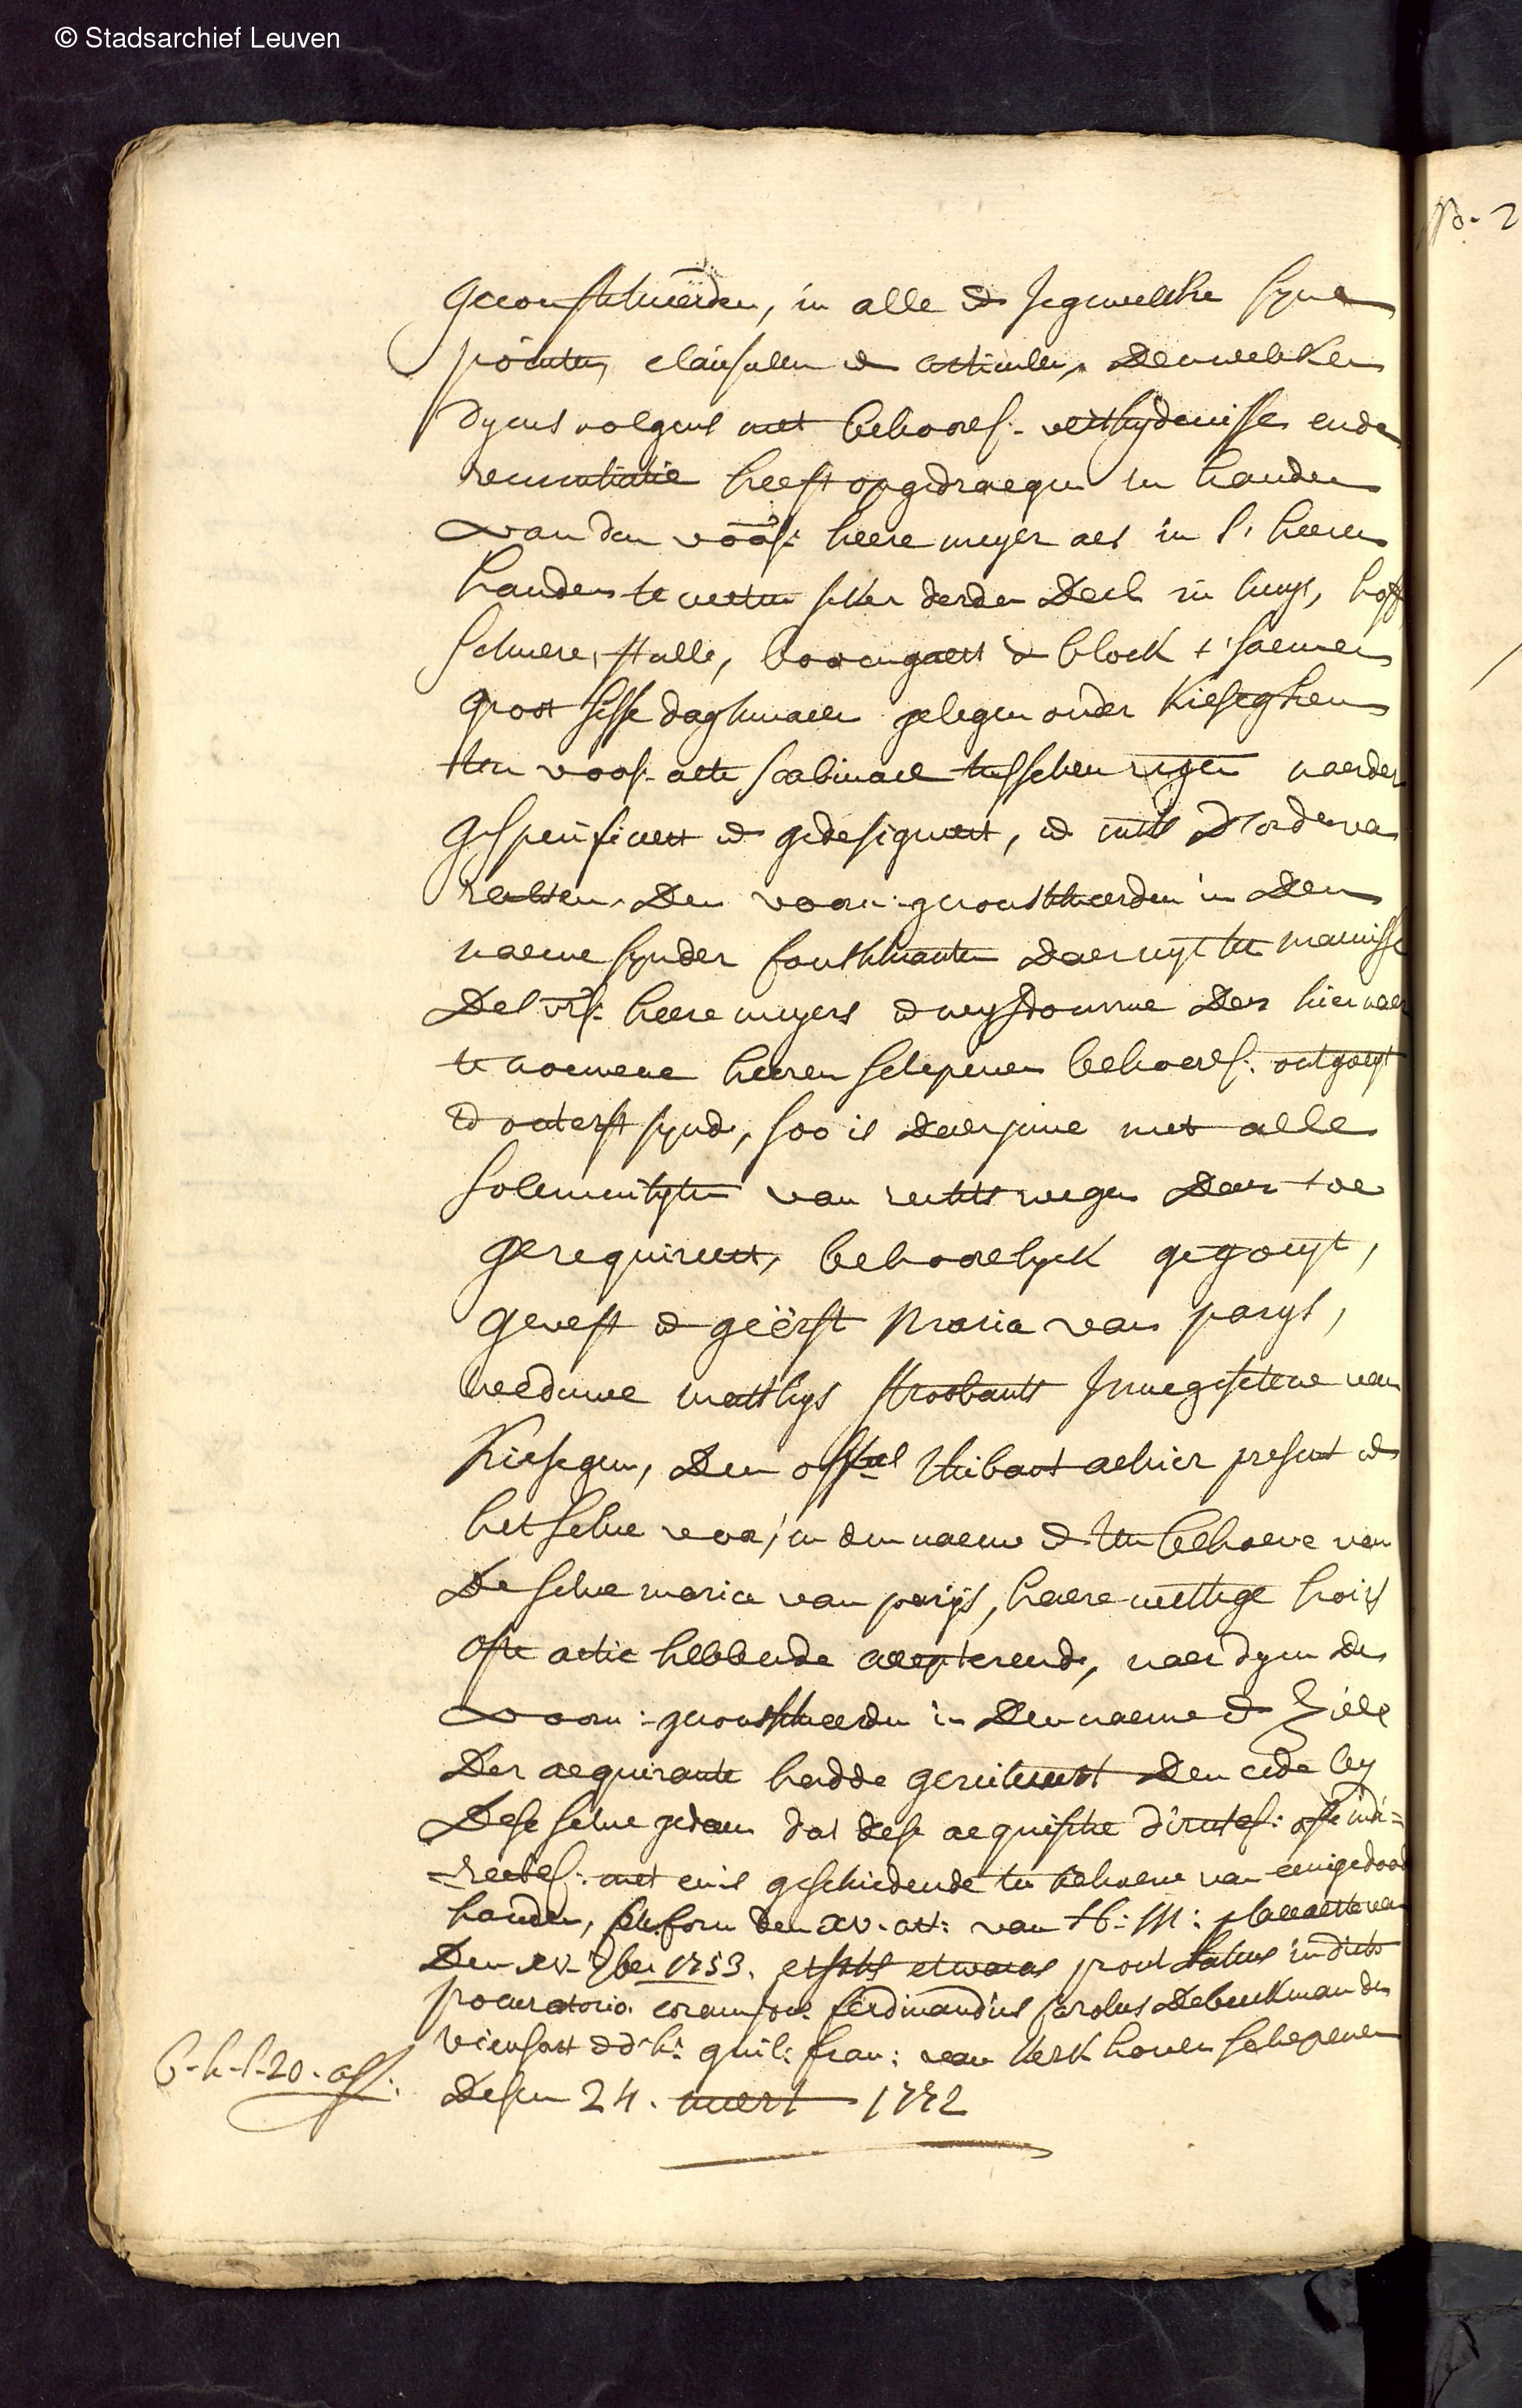 © Stadsarchief Leuven
geconstitueerden, in alle & iegewelcke syne
pointen, clausulen & articulen, denwelcken
dyens volgens met behoorl: verthydenisse ende
renuntiatie heeft opgedraegen in handen
van den voors: heere meyer als in s' heeren
handen te weten seker derden deel in huys, hoff
schuere, stalle, boomgaert & block t' saemen
groot sesse daghmaelen gelegen onder Kieseghem
ten voors. acte scabinael tusschen regen naerder
gespecificeert & gedesigneert, & mits d'orde van
rechten den voorn: geconstitueerden in den
naeme synder constituanten daer uyt ter manisse
des vrs: heere meyers & wysdomme der hiernaer
te noemene heeren schepenen behoorl: ontgoeyt
& onterft synde, soo is daer inne met alle
solemnityten van rechts wegen daer toe
gerequireert, behoorelyck gegoeyt,
gevest & geërft Maria van parys,
weduwe matthys stroobants innegesetene van
Kiesegem, den offel Thibaut alhier present &
het selve voor, in den naeme & ten behoeve van
de selve maria van parys, haere wettige hoirs
ofte actie hebbende accepterende, naer dyen den
voorn: geconstitueerden in den naeme & ziele
der acquirante hadde geruitereert den eede by
dese selve gedaen dat dese acquisitie directel: ofte indi=
=rectel: niet en is geschiedende ten behoeve van eenige doode
handen, conform den xv. art: van H: M: placcaerte van
den xv. 7ber 1753. et satis et waras prout latius in dicto
procuratorio. coram jor. ferdinandus carolus De beeckman de
vieusart & d'h: guil: fran: van Kerkhoven schepenen
desen 24. meert 1772
6-h-s-20. aff:
No. 2